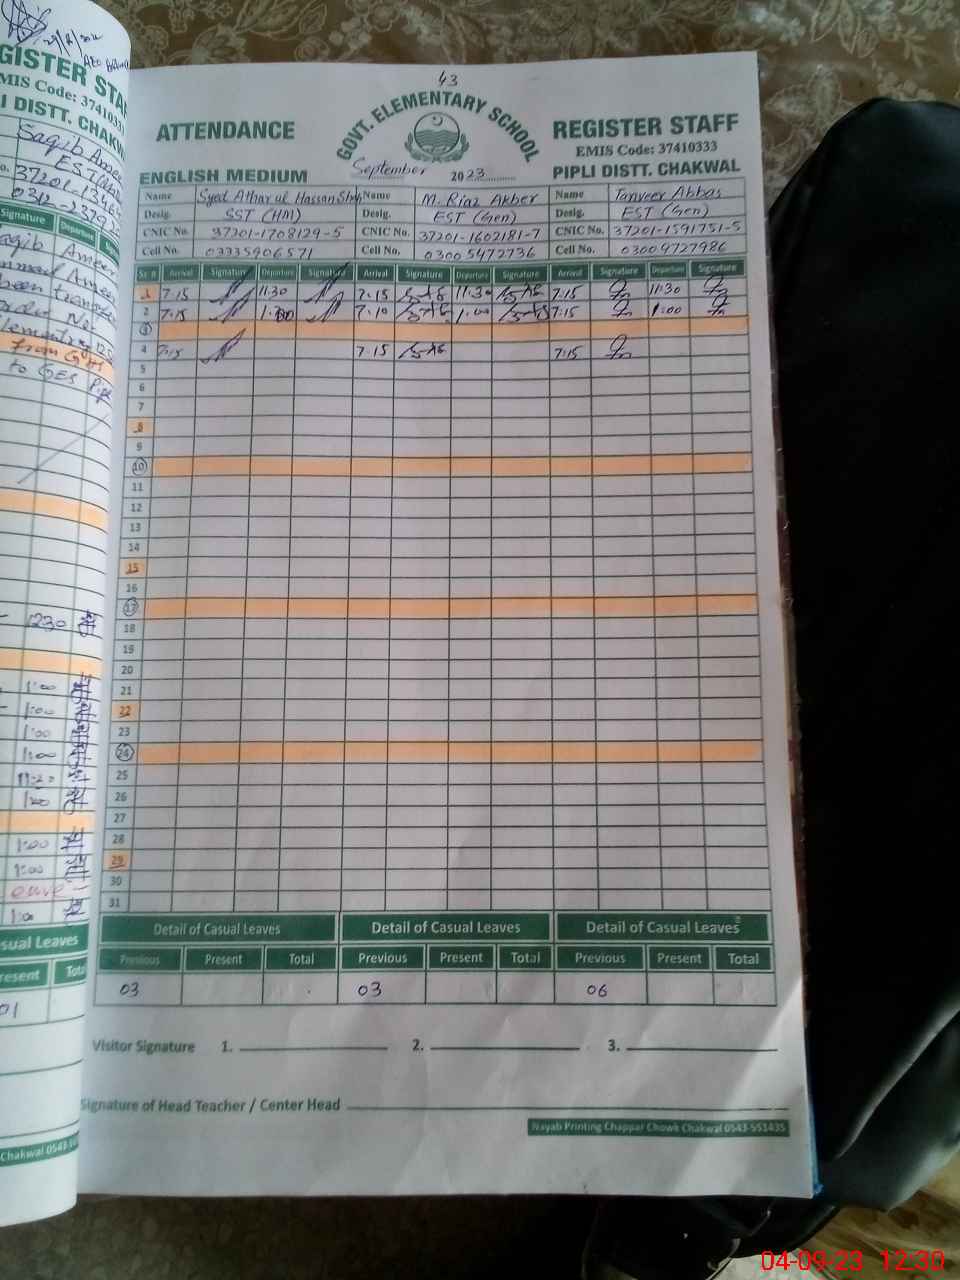 29/8/2023
REGISTER STAFF
EMIS Code: 37410333
PIPLI DISTT. CHAKWAL
Saqib Ameer
Signature Departure
to GES Pipli
1230
1:00
1:00
1:00
1:00
11:20
1:00
1:00
1:00
1:00
Casual Leaves
Present Total
01
43
GOVT. ELEMENTARY SCHOOL
ATTENDANCE REGISTER STAFF
EMIS Code: 37410333
ENGLISH MEDIUM September 2023 PIPLI DISTT. CHAKWAL
Name Syed Athar ul Hassan Shah Name M. Riaz Akber Name Tanveer Abbas
Desig. SST (HM) Desig. EST (Gen) Desig. EST (Gen)
CNIC No. 37201-1708129-5 CNIC No. 37201-1602181-7 CNIC No. 37201-1591751-5
Cell No. 03335906571 Cell No. 03005472736 Cell No. 03009727986
Sr. # Arrival Signature Departure Signature Arrival Signature Departure Signature Arrival Signature Departure Signature
1 7:15 11:30 7:15 11:30 7:15 11:30
2 7:15 1:00 7:10 1:00 7:15 1:00
3
4 7:15 7:15 7:15
5
6
7
8
9
10
11
12
13
14
15
16
17
18
19
20
21
22
23
24
25
26
27
28
29
30
31
Detail of Casual Leaves Detail of Casual Leaves Detail of Casual Leaves
Previous Present Total Previous Present Total Previous Present Total
03 03 06
Visitor Signature 1. 2. 3.
Signature of Head Teacher / Center Head
Nayab Printing Chappar Chowk Chakwal 0543-551435
04-09-23 12:30